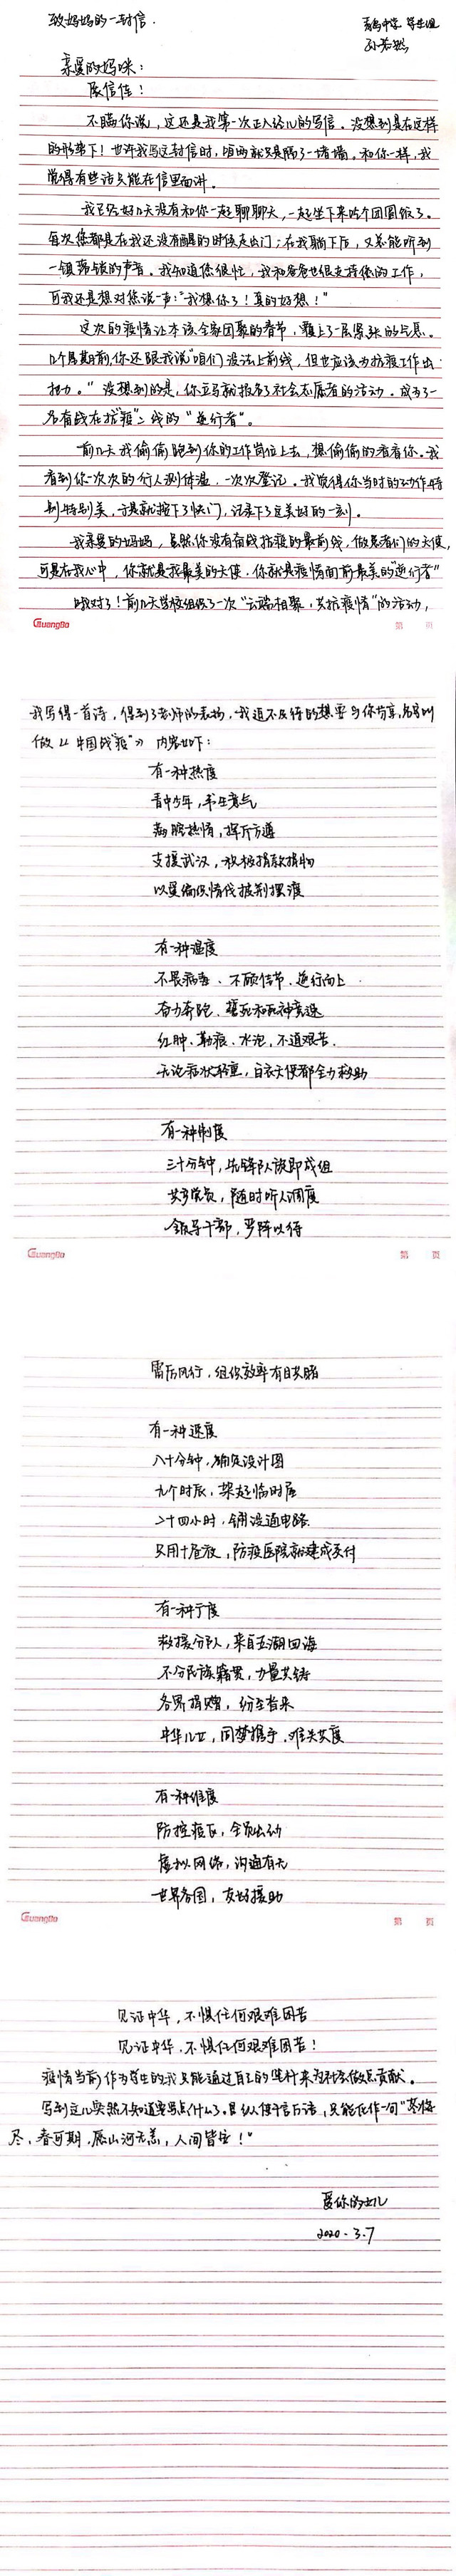 致妈妈的一封信.
青岛中学 学生组
孙若然
亲爱的妈咪：
展信佳！
不瞒你说，这还是我第一次正儿八经的写信。没想到是在这样
的形势下！也许我写这封信时，咱两就只是隔了一堵墙。和你一样，我
觉得有些话只能在信里面讲。
我已经好几天没有和你一起聊聊天，一起坐下来吃个团圆饭了。
每次您都是在我还没有醒的时候走出门；在我躺下后，又总能听到
一锁
的声音。我知道您很忙，我和爸爸也很支持您的工作，
可我还是想对您说一声：“我想你了！真的好想！”
这次的疫情让本该全家团聚的春节，覆上了一层紧张的气息。
几个星期前，你还跟我说“咱们没法上前线，但也应该为抗疫工作出
把力。”没想到的是，你立马就报名了社会志愿者的活动。成为了一
名奋战在抗“疫”二线的“逆行者”。
前几天我偷偷跑到你的工作岗位上去，想偷偷的看看你。我
看到你一次次的给行人测体温，一次次登记。我觉得你当时的动作特
别特别美，于是就按下了快门，记录下了这美好的一刻。
我亲爱的妈妈，虽然你没有奋战抗疫的最前线，做患者们的天使，
可是在我心中，你就是我最美的天使。你就是疫情面前最美的“逆行者”
哦对了！前几天学校组织了一次“云端相聚，共抗疫情”的活动，
Guangbo
第 页
我写得一首诗，得到了老师的表扬，我迫不及待的想要与你分享，名字叫
做《中国战“疫”》内容如下：
有一种热度
青中少年，书生意气
满腔热情，挥斥方遒
支援武汉，积极捐款捐物
以爱偏倾情伐披荆摆渡
有一种温度
不畏病毒、不顾佳节、逆行向上
奋力奔跑，誓死和死神竞速
红肿、勒痕、水泡，不道艰苦
无论症状轻重，白衣天使都全力救助
有一种制度
三十分钟，先锋队旋即成组
共产党员，随时听人调度
领导干部，严阵以待
Guangbo
第 页
雷厉风行，组织效率有目共睹
有一种速度
八十分钟，确定设计图
九个时辰，架起临时屋
二十四小时，铺设通电路
只用十昼夜，防疫医院就建成交付
有一种广度
救援分队，来自五湖四海
不分民族籍贯，力量共铸
各界捐赠，纷至沓来
中华儿女，同梦携手，难关共度
有一种维度
防控疫区，全员出动
虚拟网络，沟通有无
世界各国，友好援助
Guangbo
第 页
见证中华，不惧任何艰难困苦
见证中华，不惧任何艰难困苦！
疫情当前作为学生的我只能通过自己的
来为社会做点贡献。
写到这儿突然不知道要写点什么了。纵使千言万语，只能化作一句“冬将
尽，春可期，愿山河无恙，人间皆安！”
爱你的女儿
2020.3.7